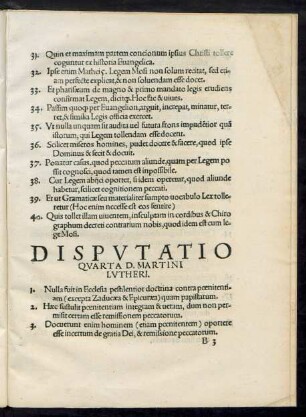 31. Quin et maximam partem concionum ipsius Christi tollere
coguntur ex historia Euangelica.
32. Ipse enim Mathei 5. Legem Mosi non solum recitat, sed eti
am perfecte explicat, & non soluendam esse docet.
33. Et phariseum de magno & primo mandato legis erudiens
confirmat Legem, dicitq. Hoc fac & uiues.
34. Passim quoq per Euangelion, arguit, increpat, minatur, ter
ret, & similia Legis officia exercet.
35. Vt nulla unquam sit audita uel futura frons impudētior quā
illorum, qui Legem tollendam esse docent.
36. Scilicet miseros homines, pudet docere & facere, quod ipse
Dominus & fecit & docuit.
37. Ponatur casus, quod peccatum aliunde, quam per Legem po
ssit cognosci, quod tamen est inpossibile.
38. Cur Legem abijci oportet, si idem operetur, quod aliunde
habetur, scilicet cognitionem peccati.
39. Erut Grammatice seu materialiter sumpto uocabulo Lex tolle
retur (Hoc enim necesse est eos sentire)
40. Quis tollet illam uiuentem, insculptam in cordibus & Chiro
graphum decreti contrarium nobis, quod idem est cum le
ge Mosi.
DISPVTATIO
QVARTA D. MARTINI
LVTHERI.
1. Nulla fuit in Ecclesia pestilentior doctrina contra pœnitenti
am (excepta Zaducæa & Epicuræa) quam papistarum.
2. Hæc sustulit pœnitentiam integram & ueram, dum non per
misit certam esse remissionem peccatorum.
3. Docuerunt enim hominem (etiam pœnitentem) oportere
esse incertum de gratia Dei, & remissione peccatorum.
B 3